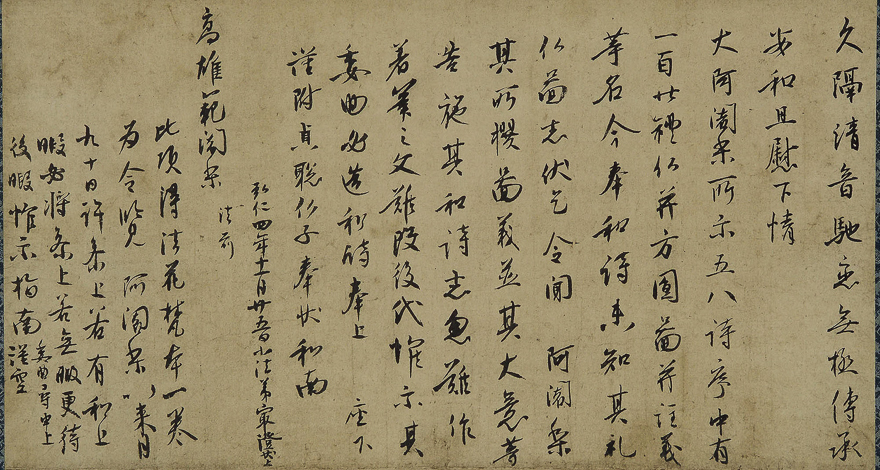 久隔清音馳恋無極傳承
安和且慰下情
大阿闍梨所示五八詩序中有
一百廿禮仏并方圓圖并註義
等名今奉和詩未知其礼
仏圖者伏乞令聞 阿闍梨
其所撰圖義并其大意等
告施其和詩者忽難作
著筆之文難改後代惟示其
委曲必造和詩奉上 座下
謹附貞聡仏子奉状和南
弘仁四年十一月廿五日小法弟最澄状上
高雄範闍梨 法前
此頃得法花梵本一巻
為令覧 阿闍梨以来月
九十日許参上若有和上
暇必将参上若無暇更待
後暇惟示指南 委曲尋申上 謹空